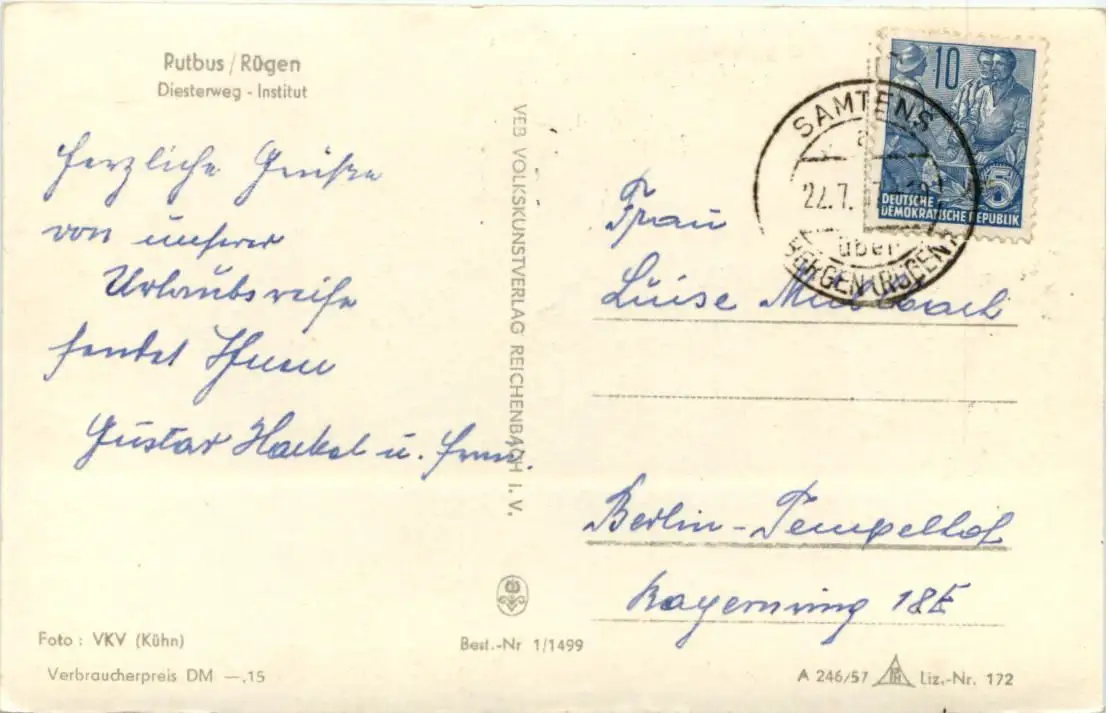 Putbus / Rügen
Diesterweg - Institut
Herzliche Grüße
von unserer
Urlaubsreise
sendet Ihnen
Gustav Hackel u. Frau.
VEB VOLKSKUNSTVERLAG REICHENBACH i. V.
10
5
DEUTSCHE
DEMOKRATISCHE REPUBLIK
SAMTENS
a
22.7.
über
BERGEN (RÜGEN)
Frau
Luise
Berlin-Tempelhof
18E
Foto : VKV (Kühn)
Verbraucherpreis DM —.15
Best.-Nr 1/1499
A 246/57
Liz.-Nr. 172